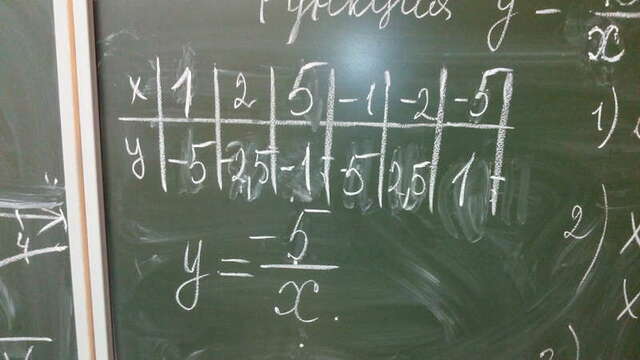 Функция y =
x | 1 | 2 | 5 | -1 | -2 | -5
y | -5 | -2,5 | -1 | 5 | 2,5 | 1
y = -5/x.
1)
2)
x
x